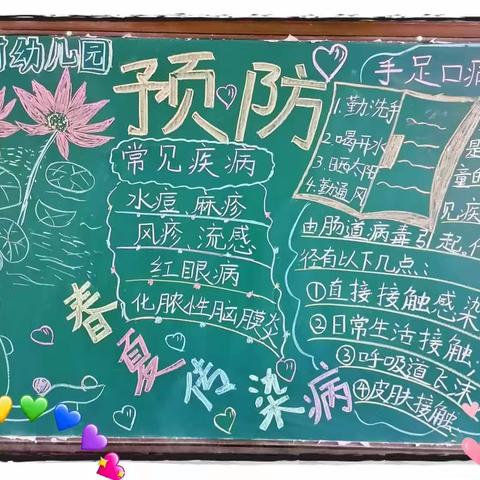 幼儿园
预防
常见疾病
水痘、麻疹
风疹、流感
红眼病
化脓性脑膜炎
春夏传染病
手足口病
1.勤洗手
2.喝开水
3.晒太阳
4.勤通风
是
童的
见疾
由肠道病毒引起。传
径有以下几点：
①直接接触感染
②日常生活接触，
③呼吸道飞沫
④皮肤接触